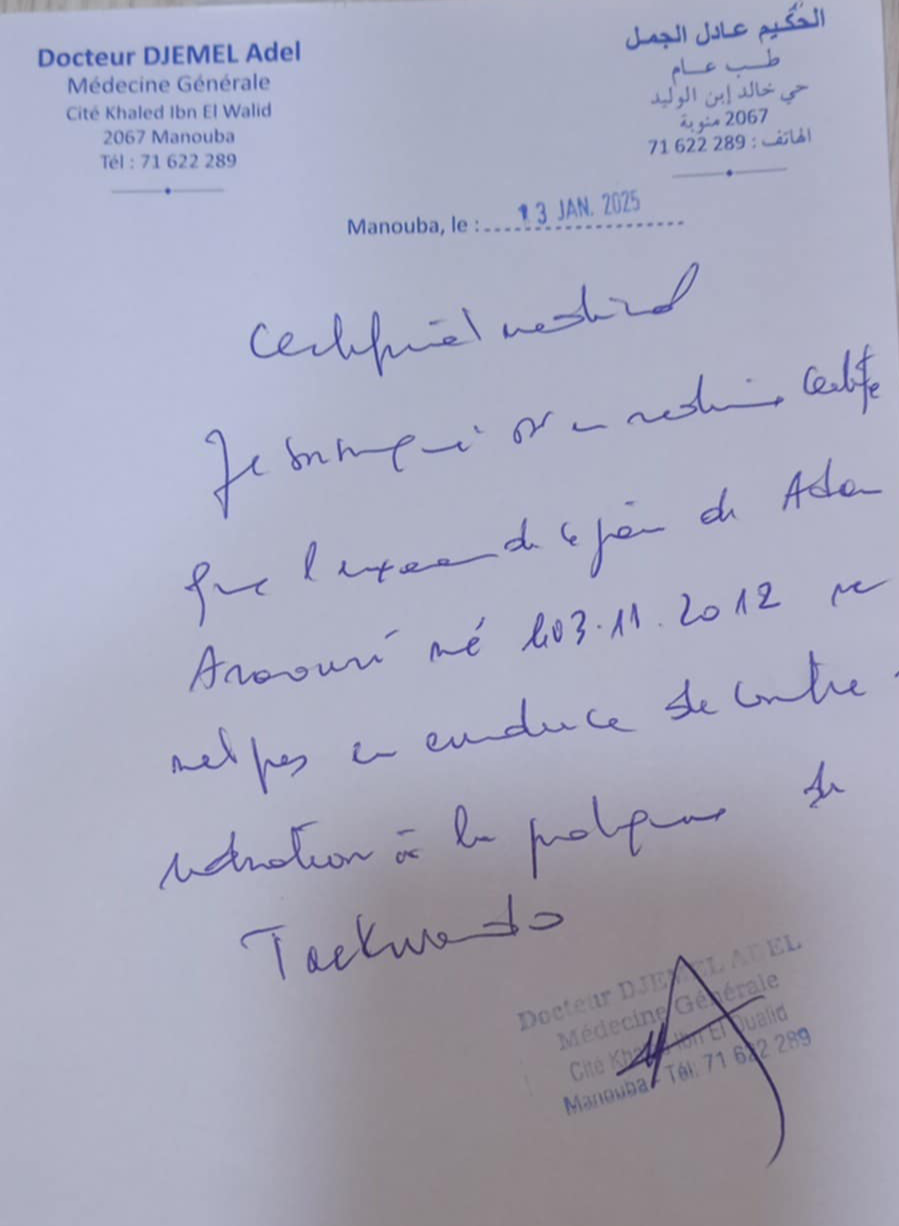 Docteur DJEMEL Adel
Médecine Générale
Cité Khaled Ibn El Walid
2067 Manouba
Tél : 71 622 289
الحكيم عادل الجمل
طب عام
حي خالد إبن الوليد
2067 منوبة
الهاتف : 289 622 71
Manouba, le : 13 JAN. 2025
Certificat médical
Je soussigné Dr en médecine certifie
que l'examen de ce jour de Adam
né le 03.11.2012 ne
met pas en évidence de contre
indication à la pratique du
Taekwondo
Docteur DJEMEL ADEL
Médecine Générale
Cité Khaled Ibn El Oualid
Manouba - Tél: 71 622 289